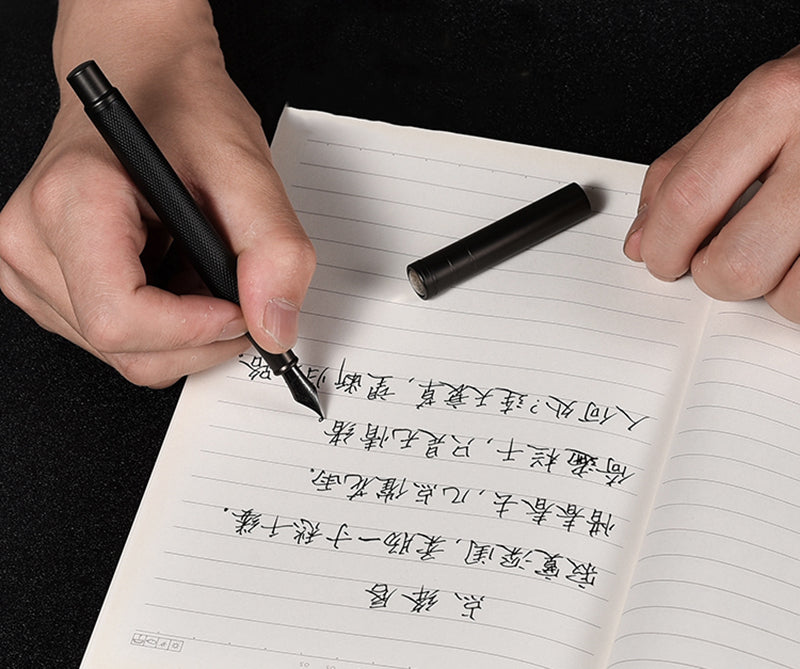 点绛唇
寂寞深闺,柔肠一寸愁千缕.
惜春春去,几点催花雨.
倚遍栏干,只是无情绪
人何处?连天衰草,望断归 路.